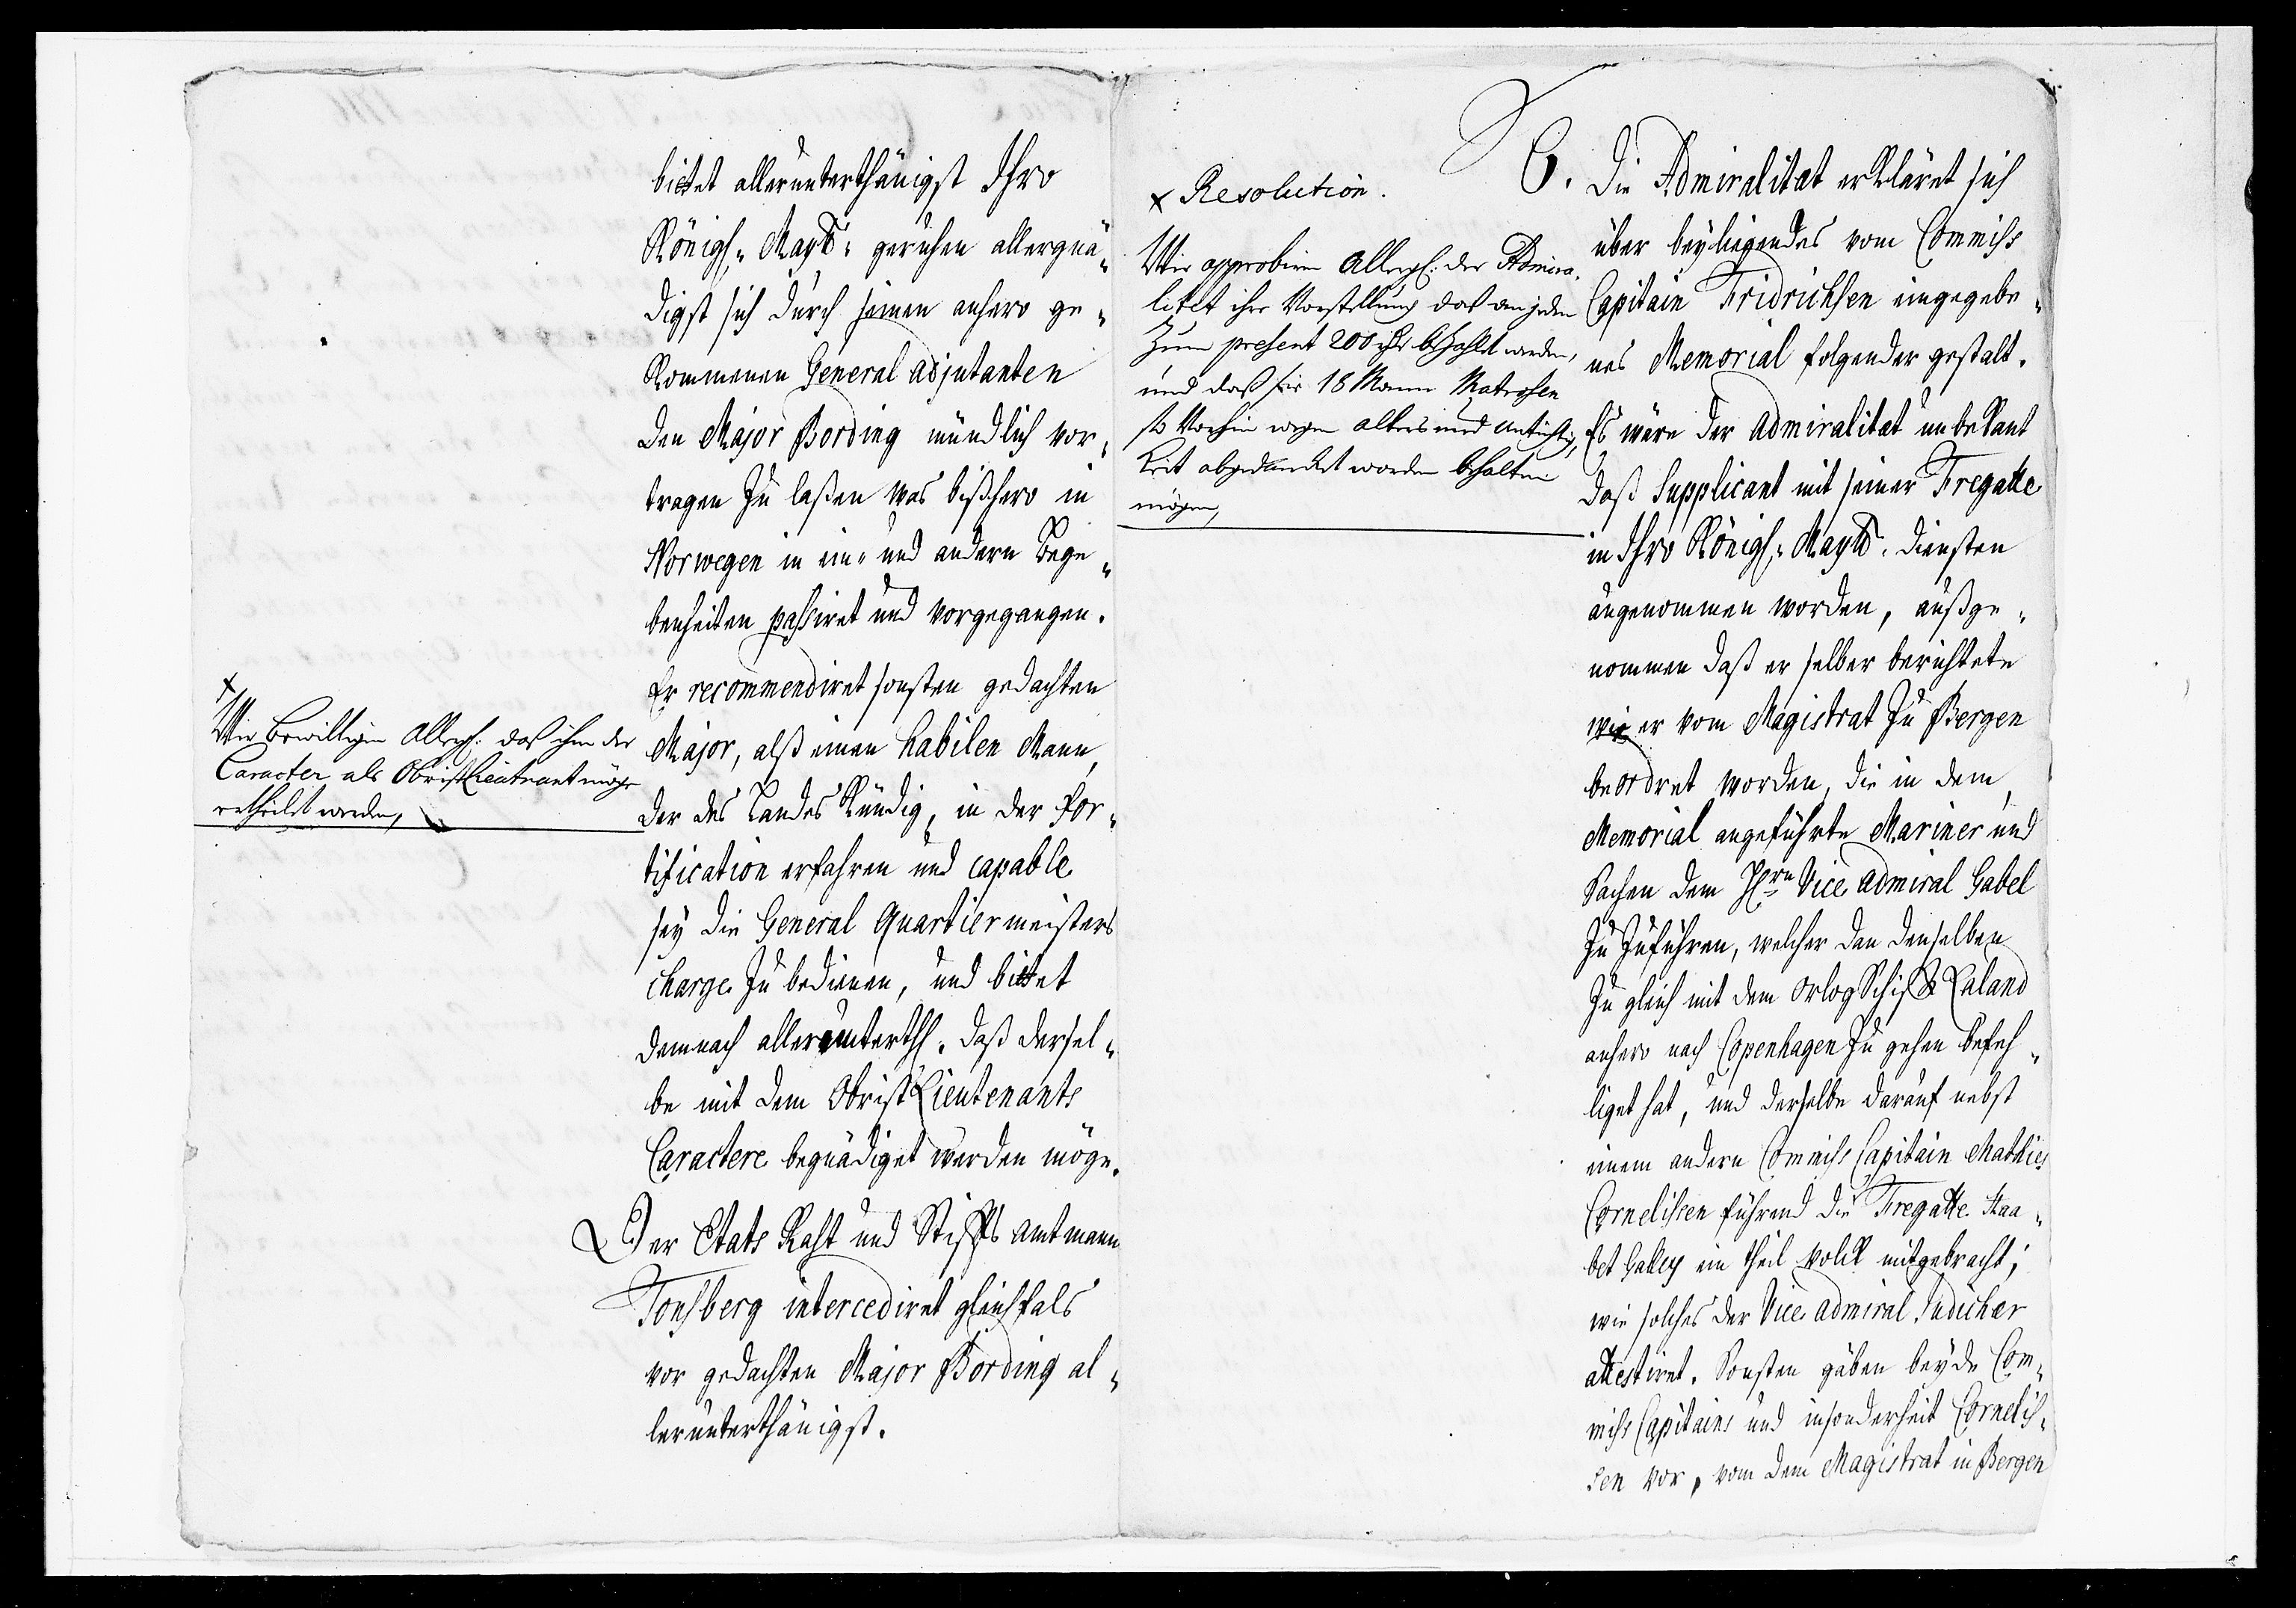 bittet allerunterthänigst Ihro
Königl: Maytt: geruhen allergnä-
digst sich durch seinen anhero ge-
kommenen General adjutanten
den Major Bording mündlich vor-
tragen zu laßen was bißhero in
Norwegen in ein- und andern Bege-
benheiten passiret und vorgegangen.
Er recommendiret sonsten gedachten
Major, alß einen habilen Mann,
der des Landes kündig, in der For-
tification erfahren und capable
sey die General Quartiermeisters
charge zu bedienen, und bittet
demnach allerunterthl. daß dersel-
be mit dem Obrist Lieutenants
Caractere begnädiget werden möge.
Der Etats Raht und Stiffts amtmann
Tonsberg intercediret gleichfals
vor gedachten Major Bording al-
lerunterthänigst.
x
Wir bewilligen Allergl: daß ihm der
Caracter als Obristlieutnant möge
ertheilet werden,
x Resolution.
Wir approbiren Allergl: der Admira-
litet ihre Vorstellung daß an jeden
zum present 200 rthr bezahlt werden,
und daß für 18 Mann Matrosen
so vorhin wegen alters und untüchtig-
keit abgedancket worden behalten
mögen,
6. Die Admiralitat erkläret sich
über beyliegendes vom Commiss
Capitain Fridrichsen eingegebe-
nes Memorial folgender gestalt.
Es wäre der Admiralitat unbekant
daß Supplicant mit seiner Fregatte
in Ihro Königl: Maytt: diensten
angenommen worden, außge-
nommen daß er selber berichtete
wie er vom Magistrat zu Bergen
beordret worden, die in dem
Memorial angeführte Mariner und
Sachen dem Hrn Vice Admiral Gabel
zu zuführen, welcher dan denselben
zu gleich mit dem Orlog Schiff Laland
anhero nach Copenhagen zu gehen befeh-
liget hat, und derselbe darauf nebst
einem andern Commiss Capitain Mathies
Cornelissen führend die Fregatte Haa-
bet Galley ein theil volck mitgebracht;
wie solches der Vice Admiral Judichær
attestiret. Sonsten gäben beyde Com-
miss Capitains und insonderheit Cornelis-
sen vor, vom dem Magistrat in Bergen